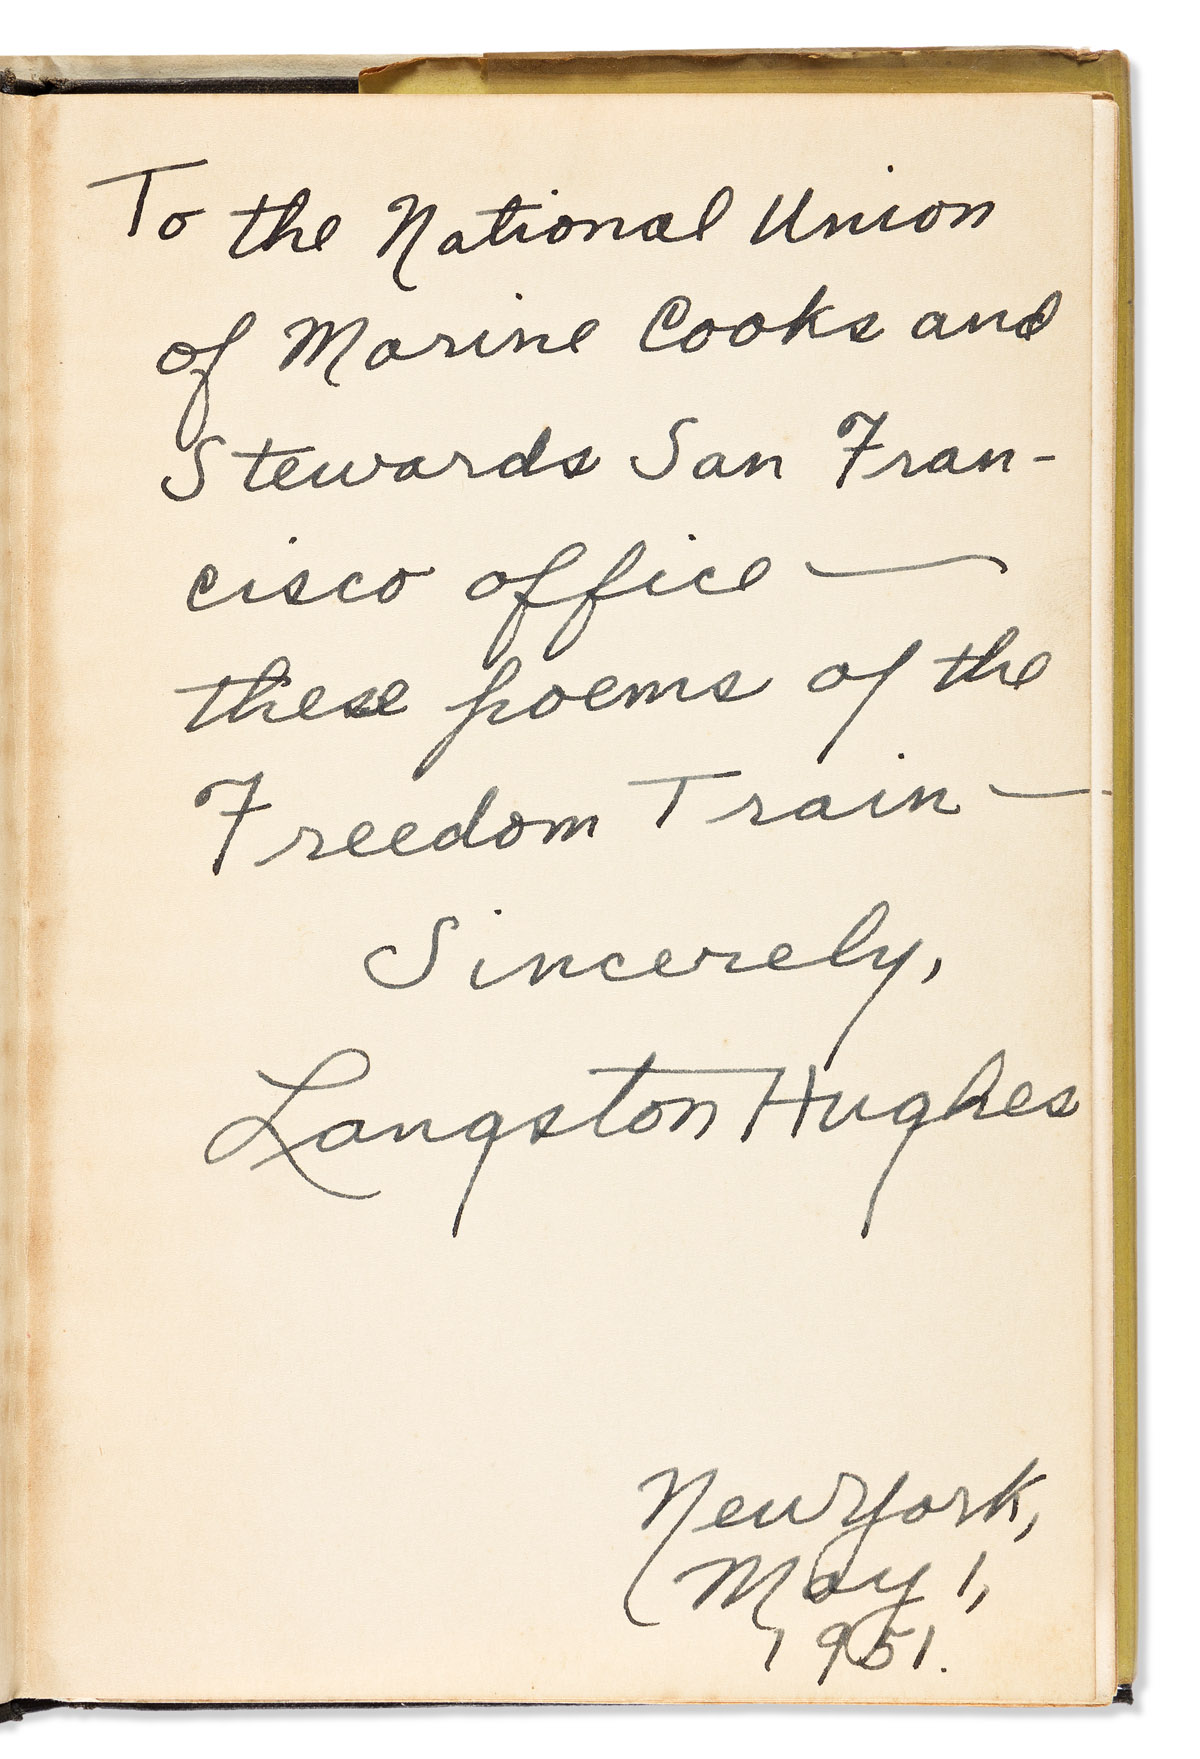 To the National Union
of Marine Cooks and
Stewards San Fran-
cisco office —
these poems of the
Freedom Train —
Sincerely,
Langston Hughes
New York,
May 1,
1951.